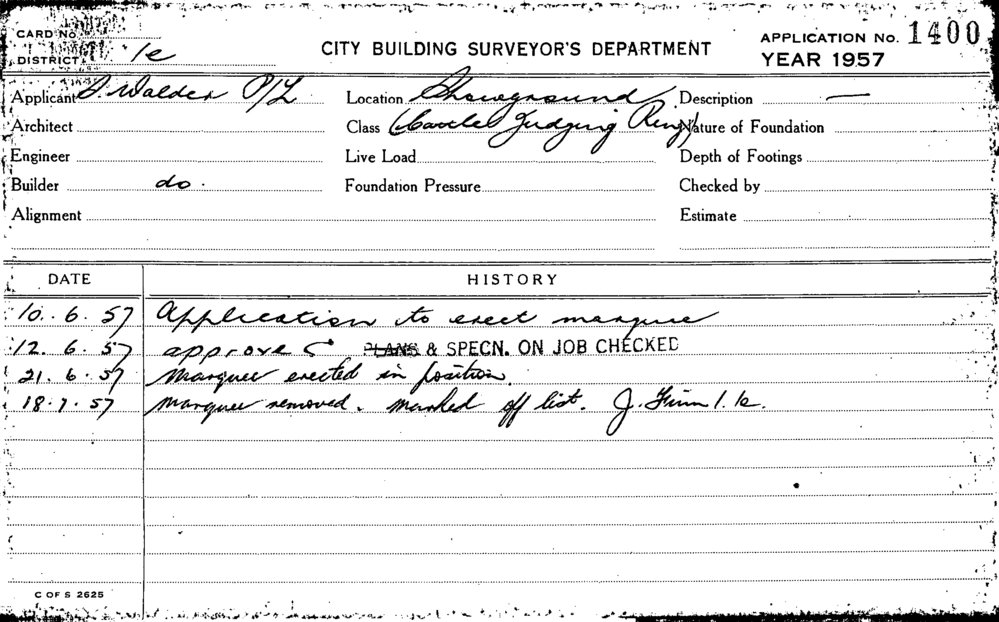 CARD No.
APPLICATION No. 1400
CITY BUILDING SURVEYOR'S DEPARTMENT
DISTRICT 1e
YEAR 1957
Applicant J. Walder P/L Location Showground Description —
Architect Class (Cattle Judging Ring) Nature of Foundation
Engineer Live Load Depth of Footings
Builder do. Foundation Pressure Checked by
Alignment Estimate
DATE HISTORY
10. 6. 57 Application to erect marquee
12. 6. 57 approved PLANS & SPECN. ON JOB CHECKED
21. 6. 57 Marquee erected in position.
18. 7. 57 Marquee removed. marked off list. J. 1. e.
C OF S 2625